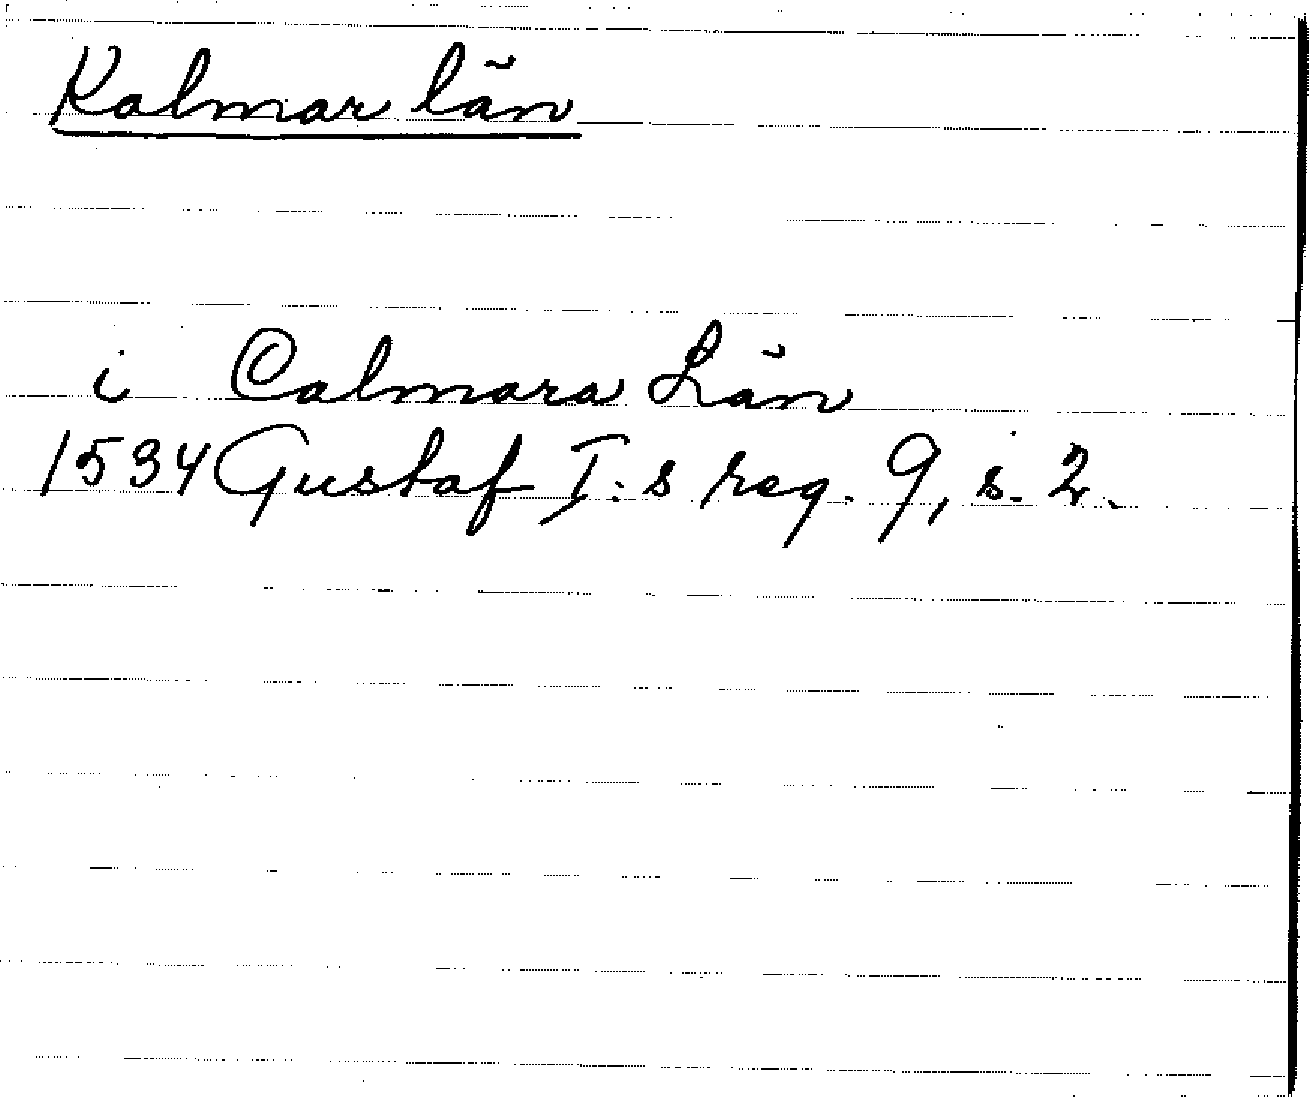 Kalmar län
i Calmara Län
1534 Gustaf I:s reg. 9, s. 2.